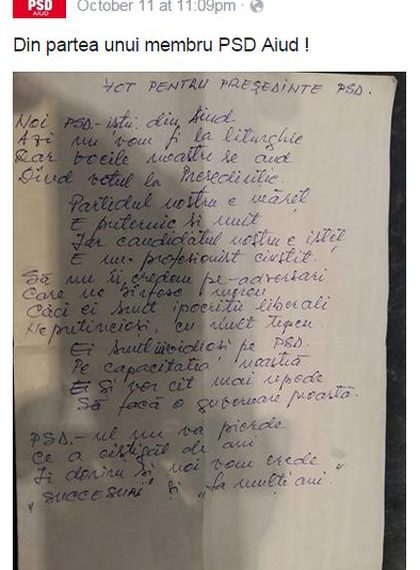 PSD
AIUD
October 11 at 11:09pm ·
Din partea unui membru PSD Aiud !
VOT PENTRU PREȘEDINTE PSD.
Noi PSD-iștii din Aiud
Azi nu vom fi la liturghie
Dar vocile noastre se aud
Dînd votul la Președinție.
Partidul nostru e măreț
E puternic și unit
Iar candidatul nostru e isteț
E un profesionist cinstit.
Să nu îi credem pe-adversari
Care ne bîrfesc mereu
Căci ei sunt ipocriții liberali
Neputincioși, cu mult tupeu
Ei sunt invidioși pe PSD.
Pe capacitatea noastră
Ei Și vor cît mai repede
Să facă o guvernare proastă.
PSD-ul nu va pierde
Ce a cîștigat de ani
Îi dorim și noi vom crede
"SUCCESURI" și "La mulți ani."